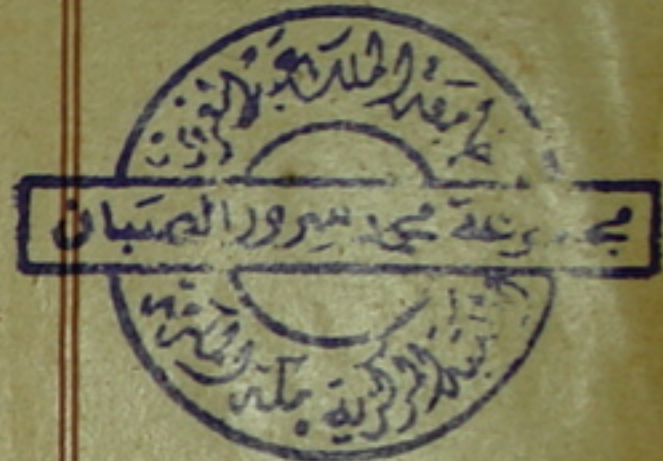 جامعة الملك عبد العزيز
مجموعة محمد سرور الصبان
المكتبة المركزية بمكة المكرمة